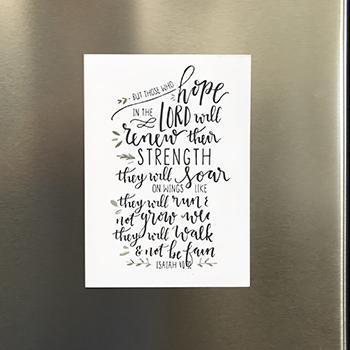 BUT THOSE WHO hope
IN THE LORD will
renew their
STRENGTH
they will soar
ON WINGS LIKE
they will run &
not grow
they will walk
& not be fain
ISAIAH